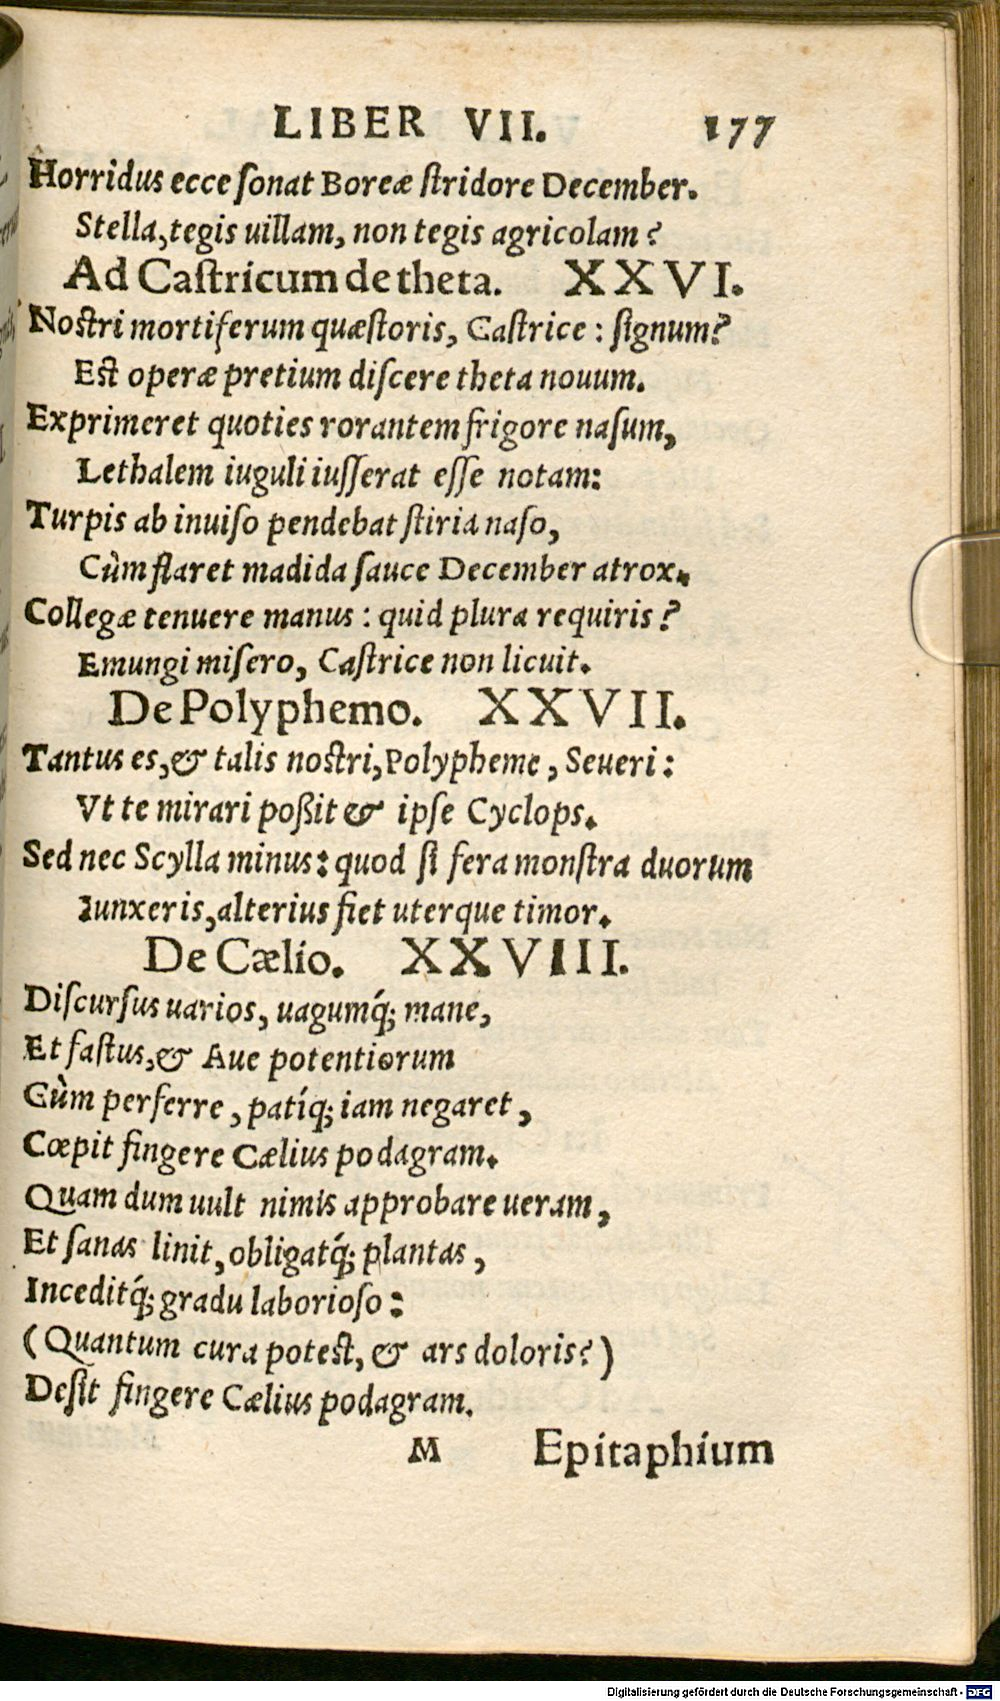 LIBER VII. 177
Horridus ecce ſonat Boreæ ſtridore December.
Stella, tegis uillam, non tegis agricolam?
Ad Caſtricum de theta. XXVI.
Noſtri mortiferum quæſtoris, Caſtrice: ſignum?
Eſt operæ pretium diſcere theta nouum.
Exprimeret quoties rorantem frigore naſum,
Lethalem iuguli iuſſerat eſſe notam:
Turpis ab inuiſo pendebat ſtiria naſo,
Cùm flaret madida fauce December atrox.
Collegæ tenuere manus: quid plura requiris?
Emungi miſero, Caſtrice non licuit.
De Polyphemo. XXVII.
Tantus es, & talis noſtri, Polypheme, Seueri:
Vt te mirari poßit & ipſe Cyclops.
Sed nec Scylla minus: quod ſi fera monſtra duorum
Iunxeris, alterius fiet uterque timor.
De Cælio. XXVIII.
Diſcurſus uarios, uagumq́; mane,
Et faſtus, & Aue potentiorum
Cùm perferre, patíq; iam negaret,
Cœpit fingere Cælius podagram.
Quam dum uult nimis approbare ueram,
Et ſanas linit, obligatq́; plantas,
Inceditq́; gradu laborioſo:
(Quantum cura poteſt, & ars doloris?)
Deſit fingere Cælius podagram.
M Epitaphium
Digitalisierung gefördert durch die Deutsche Forschungsgemeinschaft - DFG